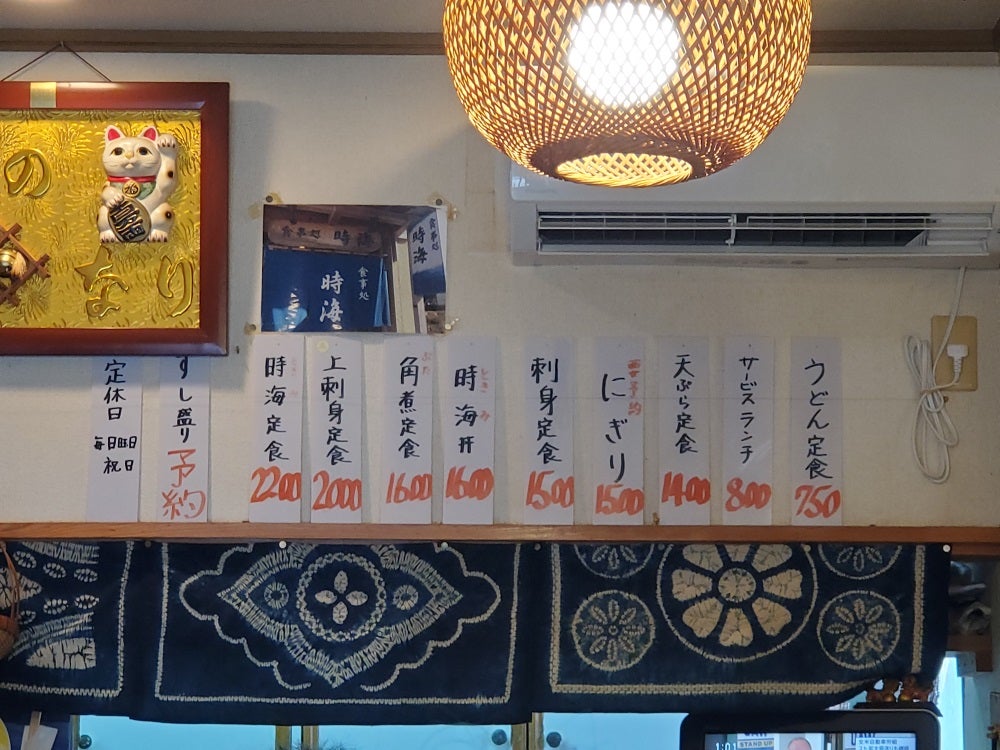 うどん定食
750
サービスランチ
800
天ぷら定食
1400
要予約
にぎり
1500
刺身定食
1500
ときみ
時海丼
1600
ぶた
角煮定食
1600
時海定食
2200
上刺身定食
2000
すし盛り
予約
定休日
毎日曜日
祝日
食事処
時海
食事処
時海
食事処
時海
の
なり
福
1:01
STAND UP